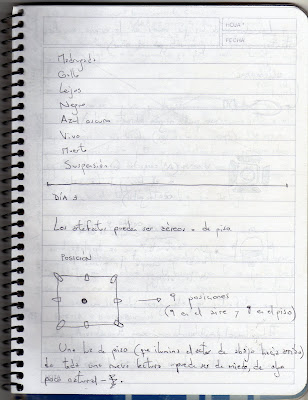 HOJA Nº
FECHA
Madrugada
Grillo
Lejos
Negro
Azul oscuro
Vivo
Muerto
Suspensión
DÍA 3
Los artefactos pueden ser aéreos o de piso.
POSICION
→ 9 posiciones
(9 en el aire y 9 en el piso)
Una luz de piso (que ilumina el actor de abajo hacia arriba)
da toda una nueva lectura - puede ser de miedo, de algo
poco natural -